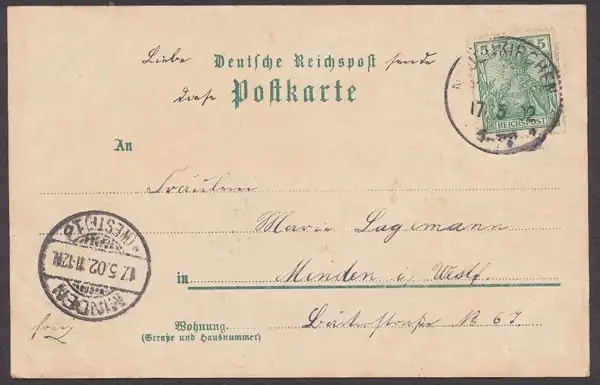 Liebe Deutsche Reichspost sende
diese Postkarte
5 5
REICHSPOST
17.5.02
An
Fräulein
Marie Lagemann
in Minden i. Westf.
Wohnung.
(Straße und Hausnummer)
No 67.
MINDEN
17.5.02.11-12V.
(WESTF) 1 b